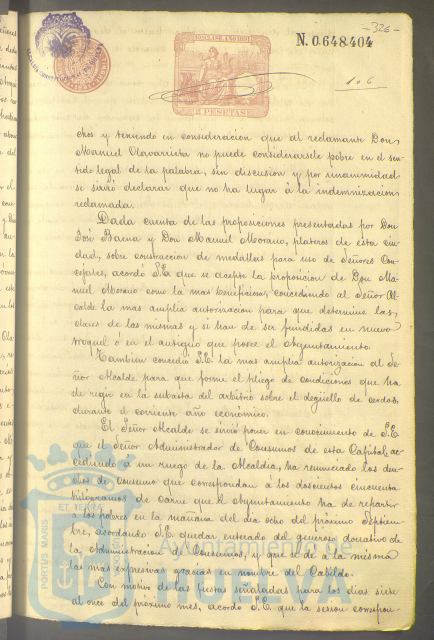 -326-
10ª CLASE. AÑO 1891
N. 0.648.404
106
2 PESETAS
chos y teniendo en consideracion que al reclamante Don
Manuel Olavarrieta no puede considerarsele pobre en el sen-
tido legal de la palabra, sin discusion y por unanimidad
se sirvió declarar que no ha lugar á la indemnizacion
reclamada.
Dada cuenta de las proposiciones presentadas por Don
José Baena y Don Manuel Morano, plateros de esta ciu-
dad, sobre construccion de medallas para uso de Señores Con-
cejales, acordó S.E. que se acepte la proposicion de Don Ma-
nuel Morano como la mas beneficiosa, concediendo al Señor Al-
calde la mas amplia autorizacion para que determine las
clases de las mismas y si han de ser fundidas en nuevo
troquel ó en el antiguo que posee el Ayuntamiento.
Tambien concedió S.E. la mas amplia autorizacion al Se-
ñor Alcalde para que forme el pliego de condiciones que ha
de regir en la subasta del arbitrio sobre el degüello de cerdos,
durante el corriente año económico.
El Señor Alcalde se sirvió poner en conocimiento de S.E.
que el Señor Administrador de Consumos de esta Capital, ac-
cediendo á un ruego de la Alcaldia, ha renunciado los dere-
chos de consumo que correspondan á los doscientos cincuenta
kilógramos de carne que el Ayuntamiento ha de repartir
á los pobres en la mañana del dia ocho del próximo Septiem-
bre, acordando S.E. quedar enterado del generoso donativo de
la Administracion de Consumos, y que se dé á la misma
las mas expresivas gracias en nombre del Cabildo.
Con motivo de las fiestas señaladas para los dias siete
al once del próximo mes, acordó S.E. que la sesion correspon-
PORTUS MARIS
ET TERRÆ
Ayuntamiento de
HUELVA